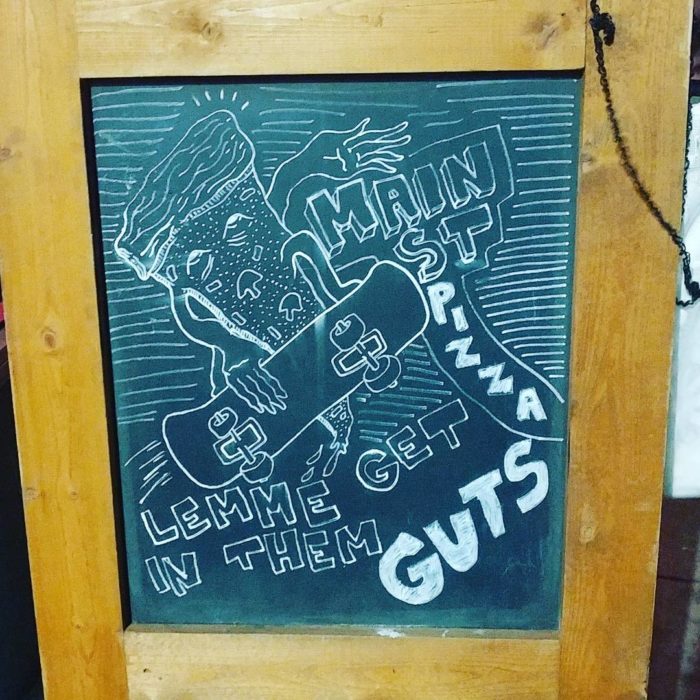 MAIN
ST
PIZZA
LEMME GET
IN THEM
GUTS